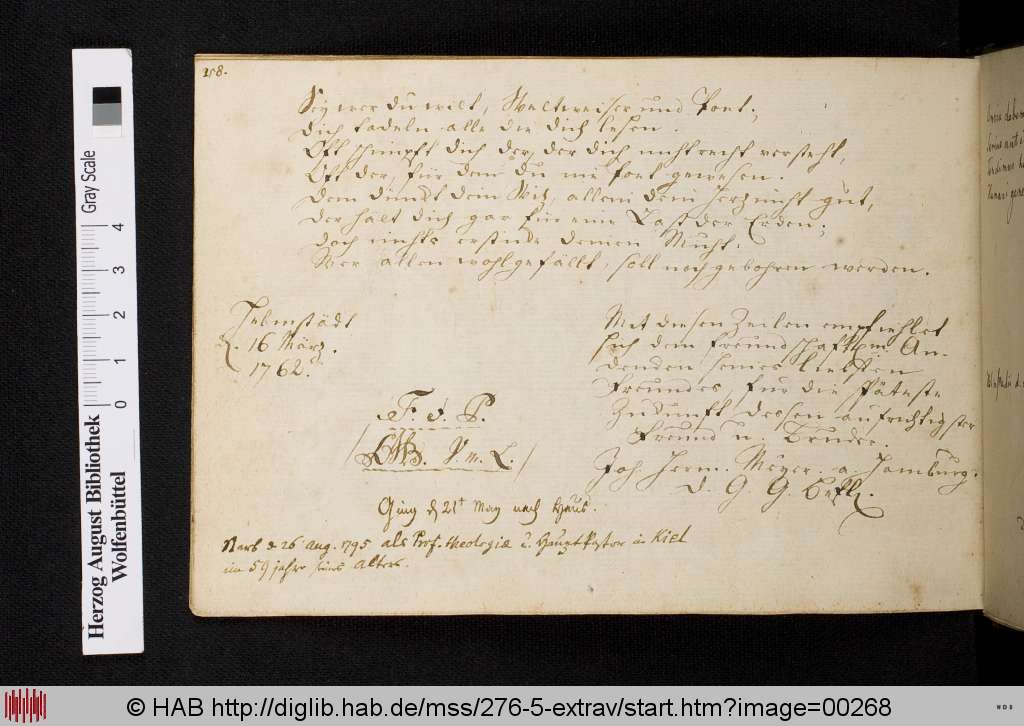 258.
Sey wer du wilt, Weltweiser und Poet,
Dich tadeln alle die dich lesen.
Oft schimpft dich der, der dich nicht recht versteht,
Oft der, für den du nie Poet gewesen.
Dem dünkt dein Witz, allein dein Herz nicht gut,
Der hält dich gar für eine Last der Erden;
Doch nichts ersticke deinen Muht.
Wer allen wohlgefällt, soll noch gebohren werden.
Helmstädt
d. 16 März.
1762.
Mit diesen Zeilen empfiehlet
sich dem Freundschaftl. An-
denken seines liebsten
Freundes, für die späteste
Zukunft dessen aufrichtigster
Freund u. Bruder.
Joh. Herm. Meyer a. Hamburg.
d. G. G. Befl.
F. S. P.
V. n. L.
Ging d 21t May nach Haus.
Starb d 26 Aug. 1795 als Prof. theologiæ u. Haupt Pastor in Kiel
im 59 jahre seines Alters.
Herzog August Bibliothek
Wolfenbüttel
Gray Scale
0 1 2 3 4
© HAB http://diglib.hab.de/mss/276-5-extrav/start.htm?image=00268